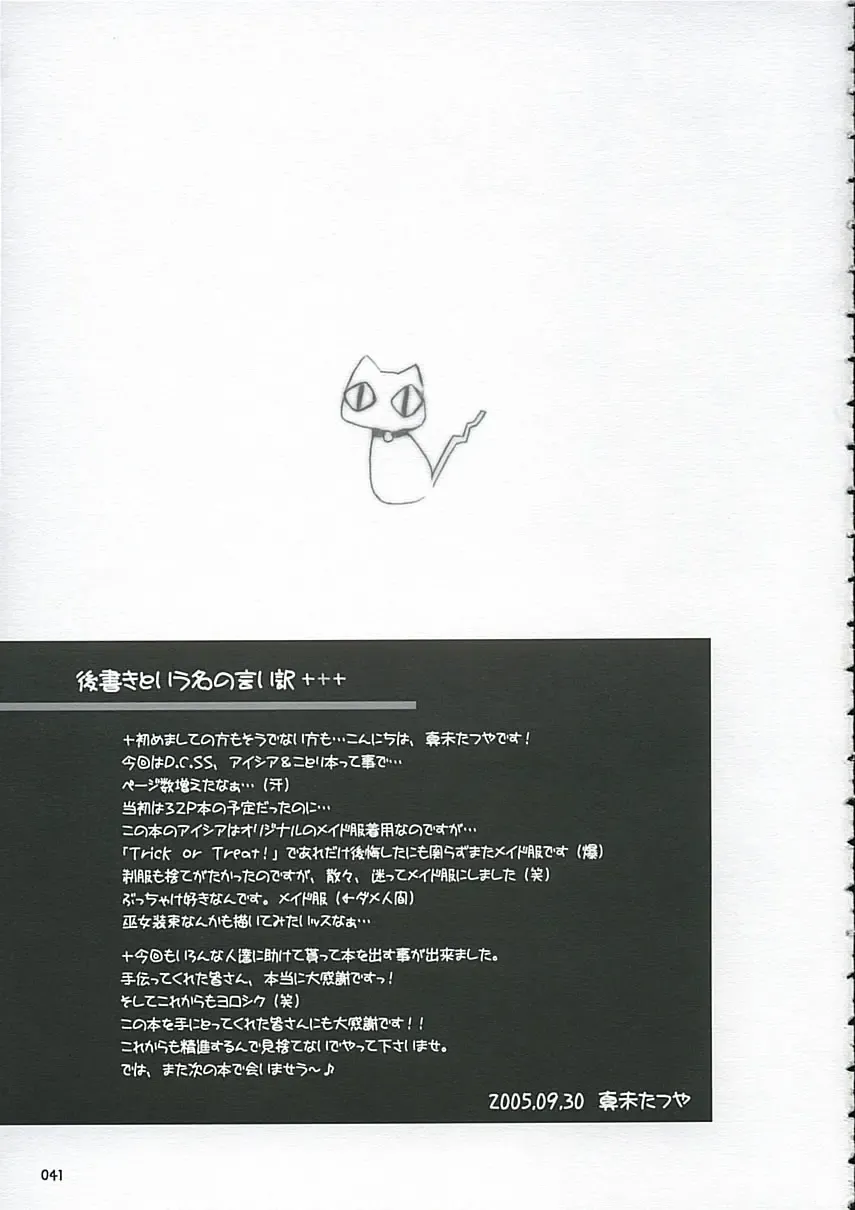 後書きという名の言い訳+++
+初めましての方もそうでない方も…こんにちは、真未たつやです!
今回はD.C.S.S、アイシア&ことり本って事で…
ページ数増えたなぁ…(汗)
当初は32P本の予定だったのに…
この本のアイシアはオリジナルのメイド服着用なのですが…
「Trick or Treat!」であれだけ後悔したにも関らずまたメイド服です(爆)
制服も捨てがたかったのですが、散々、迷ってメイド服にしました(笑)
ぶっちゃけ好きなんです。メイド服(←ダメ人間)
巫女装束なんかも描いてみたいッスなぁ…
+今回もいろんな人達に助けて貰って本を出す事が出来ました。
手伝ってくれた皆さん、本当に大感謝ですっ!
そしてこれからもヨロシク(笑)
この本を手にとってくれた皆さんにも大感謝です!!
これからも精進するんで見捨てないでやって下さいませ。
では、また次の本で会いませう～♪
2005.09.30 真未たつや
041